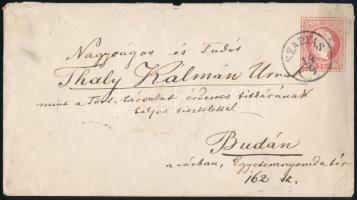 Nagyságos és Tudós
Thaly Kálmán Urnak
mint a Tört. társulat érdemes titkárának
teljes tisztelettel
Budán
a várban, Egyetemnyomda tér
162 sz.
SZARVAS